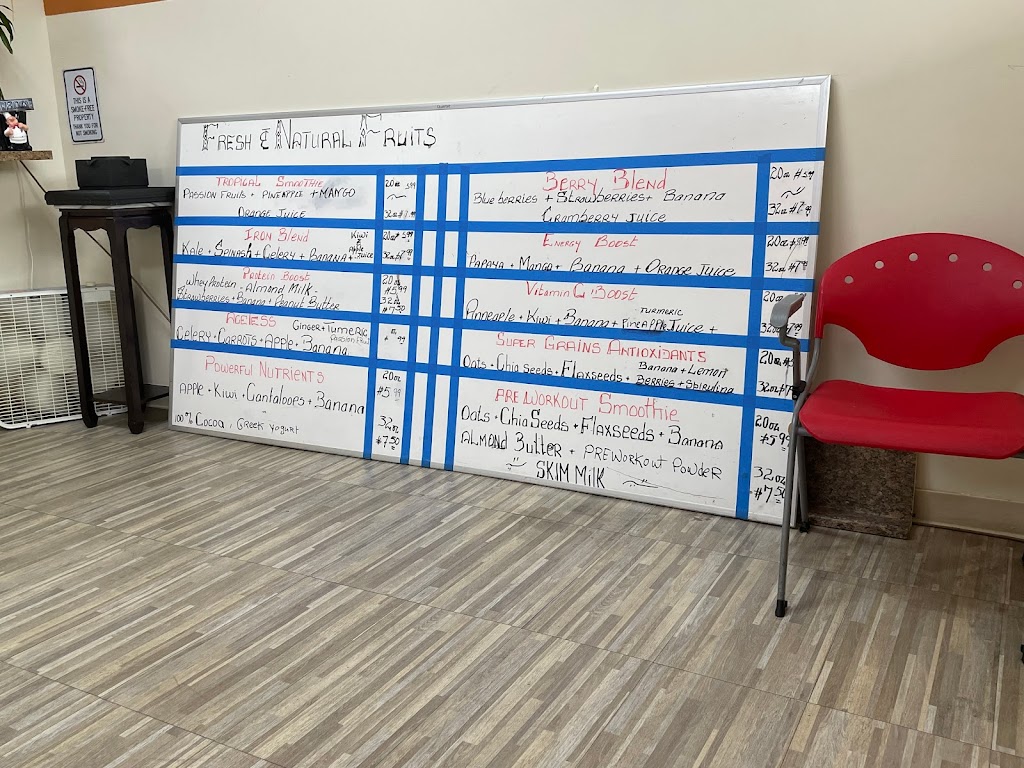 THIS IS A
SMOKE-FREE
PROPERTY
THANK YOU FOR
NOT SMOKING
FRESH & NATURAL FRUITS
TROPICAL Smoothie
PASSION FRUITS + PINEAPPLE + MANGO
ORANGE JUICE
20oz 5.99
32oz
IRON Blend
Kiwi
Apple
Juice
Kale + Spinash + Celery + BANANA +
20oz
32oz
Protein Boost
whey Protein - Almond Milk -
Strawberries + Banana + Peanut Butter
20oz
$5.99
32oz
$7.50
AGELESS
Ginger + Turmeric
Passion Fruit
Celery + CARROTS + APPle + BANANA
99
POWERFUL NUTRIENTS
APPle + Kiwi + Cantaloopes + BANANA
100% Cocoa , GREEK yogurt
20oz
$5.99
32oz
$7.50
BERRY Blend
Blueberries + Strawberries + Banana
CRAMBERRY JUICE
20oz $5.99
32oz
ENERGY BOOST
PAPAYA + Mango + Banana + Orange Juice
20oz
32oz
Vitamin C BOOST
TURMERIC
Pineaple + Kiwi + Banana + PineAPPle Juice +
20oz
32oz
SUPER GRAINS ANTIOXIDANTS
Banana + Lemon
Oats + Chia seeds + Flaxseeds + BERRIES + Spirulina
20oz
32oz
PRE WORKOUT Smoothie
Oats + Chia Seeds + Flaxseeds + Banana
ALMOND Butter + PREWORKOUT POWDER
SKIM MILK
20oz
$5.99
32oz
$7.50